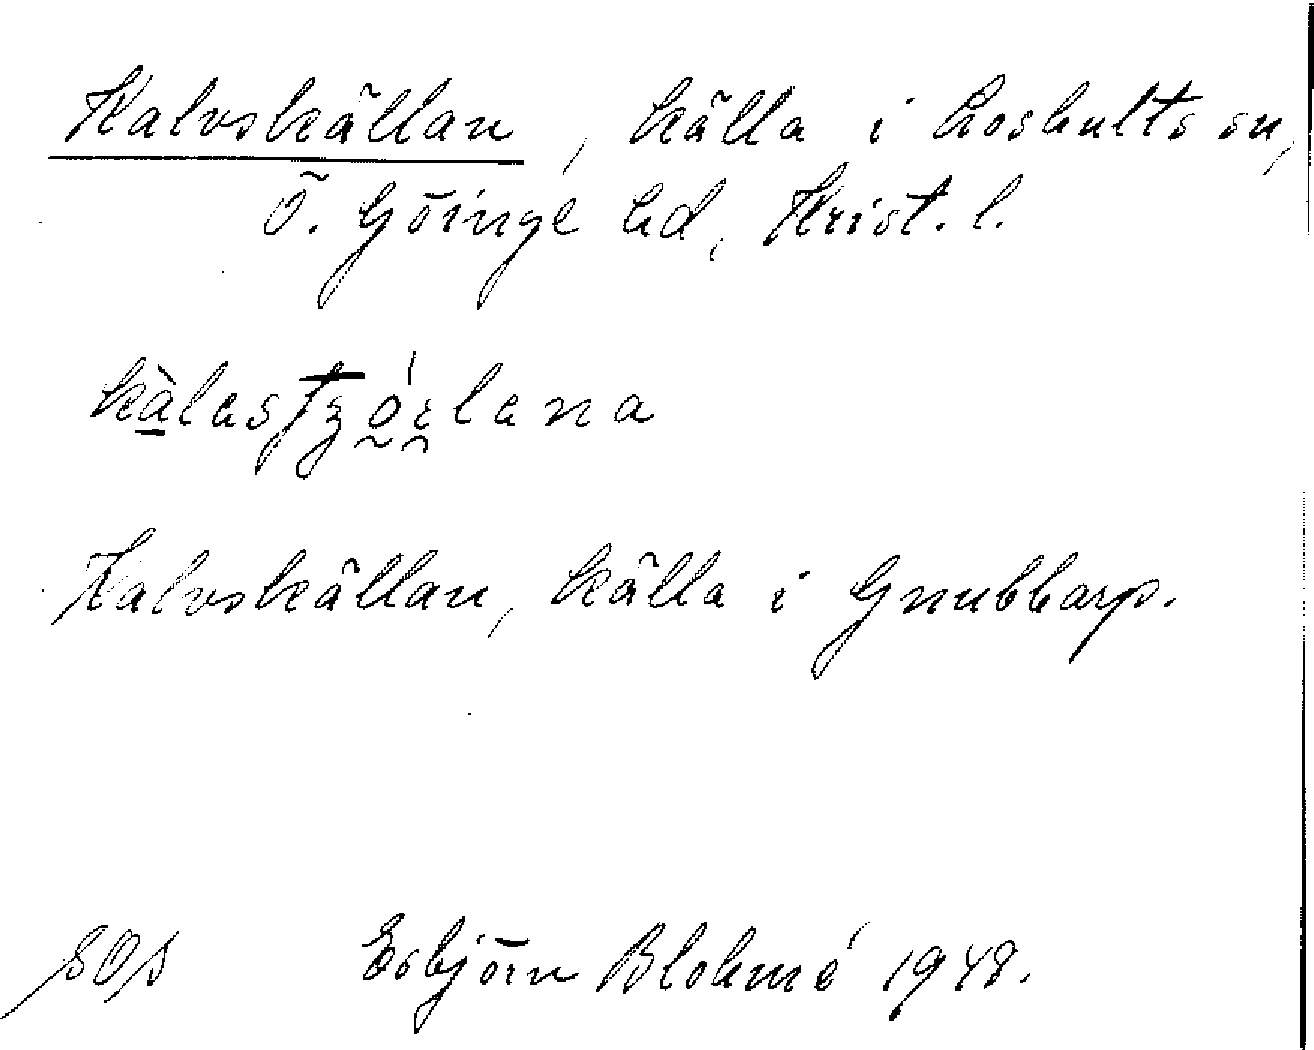 Kalvskällan, källa i Loshults sn,
Ö. Göinge hd, Krist. l.
Kalvskällan, källa i Gnubbarp.
SOS Esbjörn Blohmé 1948.